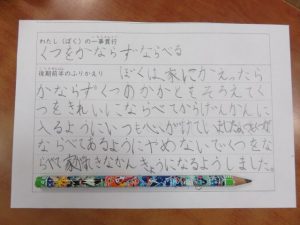 わたし（ぼく）の一事貫行
くつをかならずならべる
後期前半のふりかえり
ぼくは家にかえったら
かならずくつのかかとをそろえてく
つをきれいにならべてからげんかんに
入るようにいつもべいがけてい
ならべてあるようにやめないでくつをな
らべて きなかんきょうになるようしました。